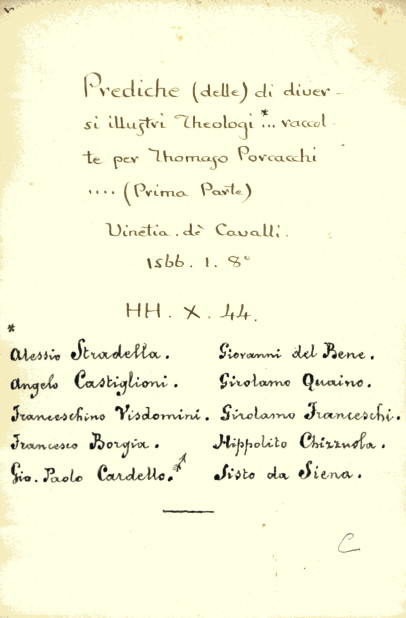 Prediche (delle) di diver-
si illustri Theologi *... raccol-
te per Thomaso Porcacchi
.... (Prima Parte)
Vinetia . dè Cavalli .
1566 . 1 . 8°
HH . X . 44 .
*
Alessio Stradella . Giovanni del Bene .
Angelo Castiglioni . Girolamo Quaino .
Franceschino Visdomini . Girolamo Franceschi .
Francesco Borgia . Hippolito Chizzuola .
Gio. Paolo Cardello . Sisto da Siena .
C